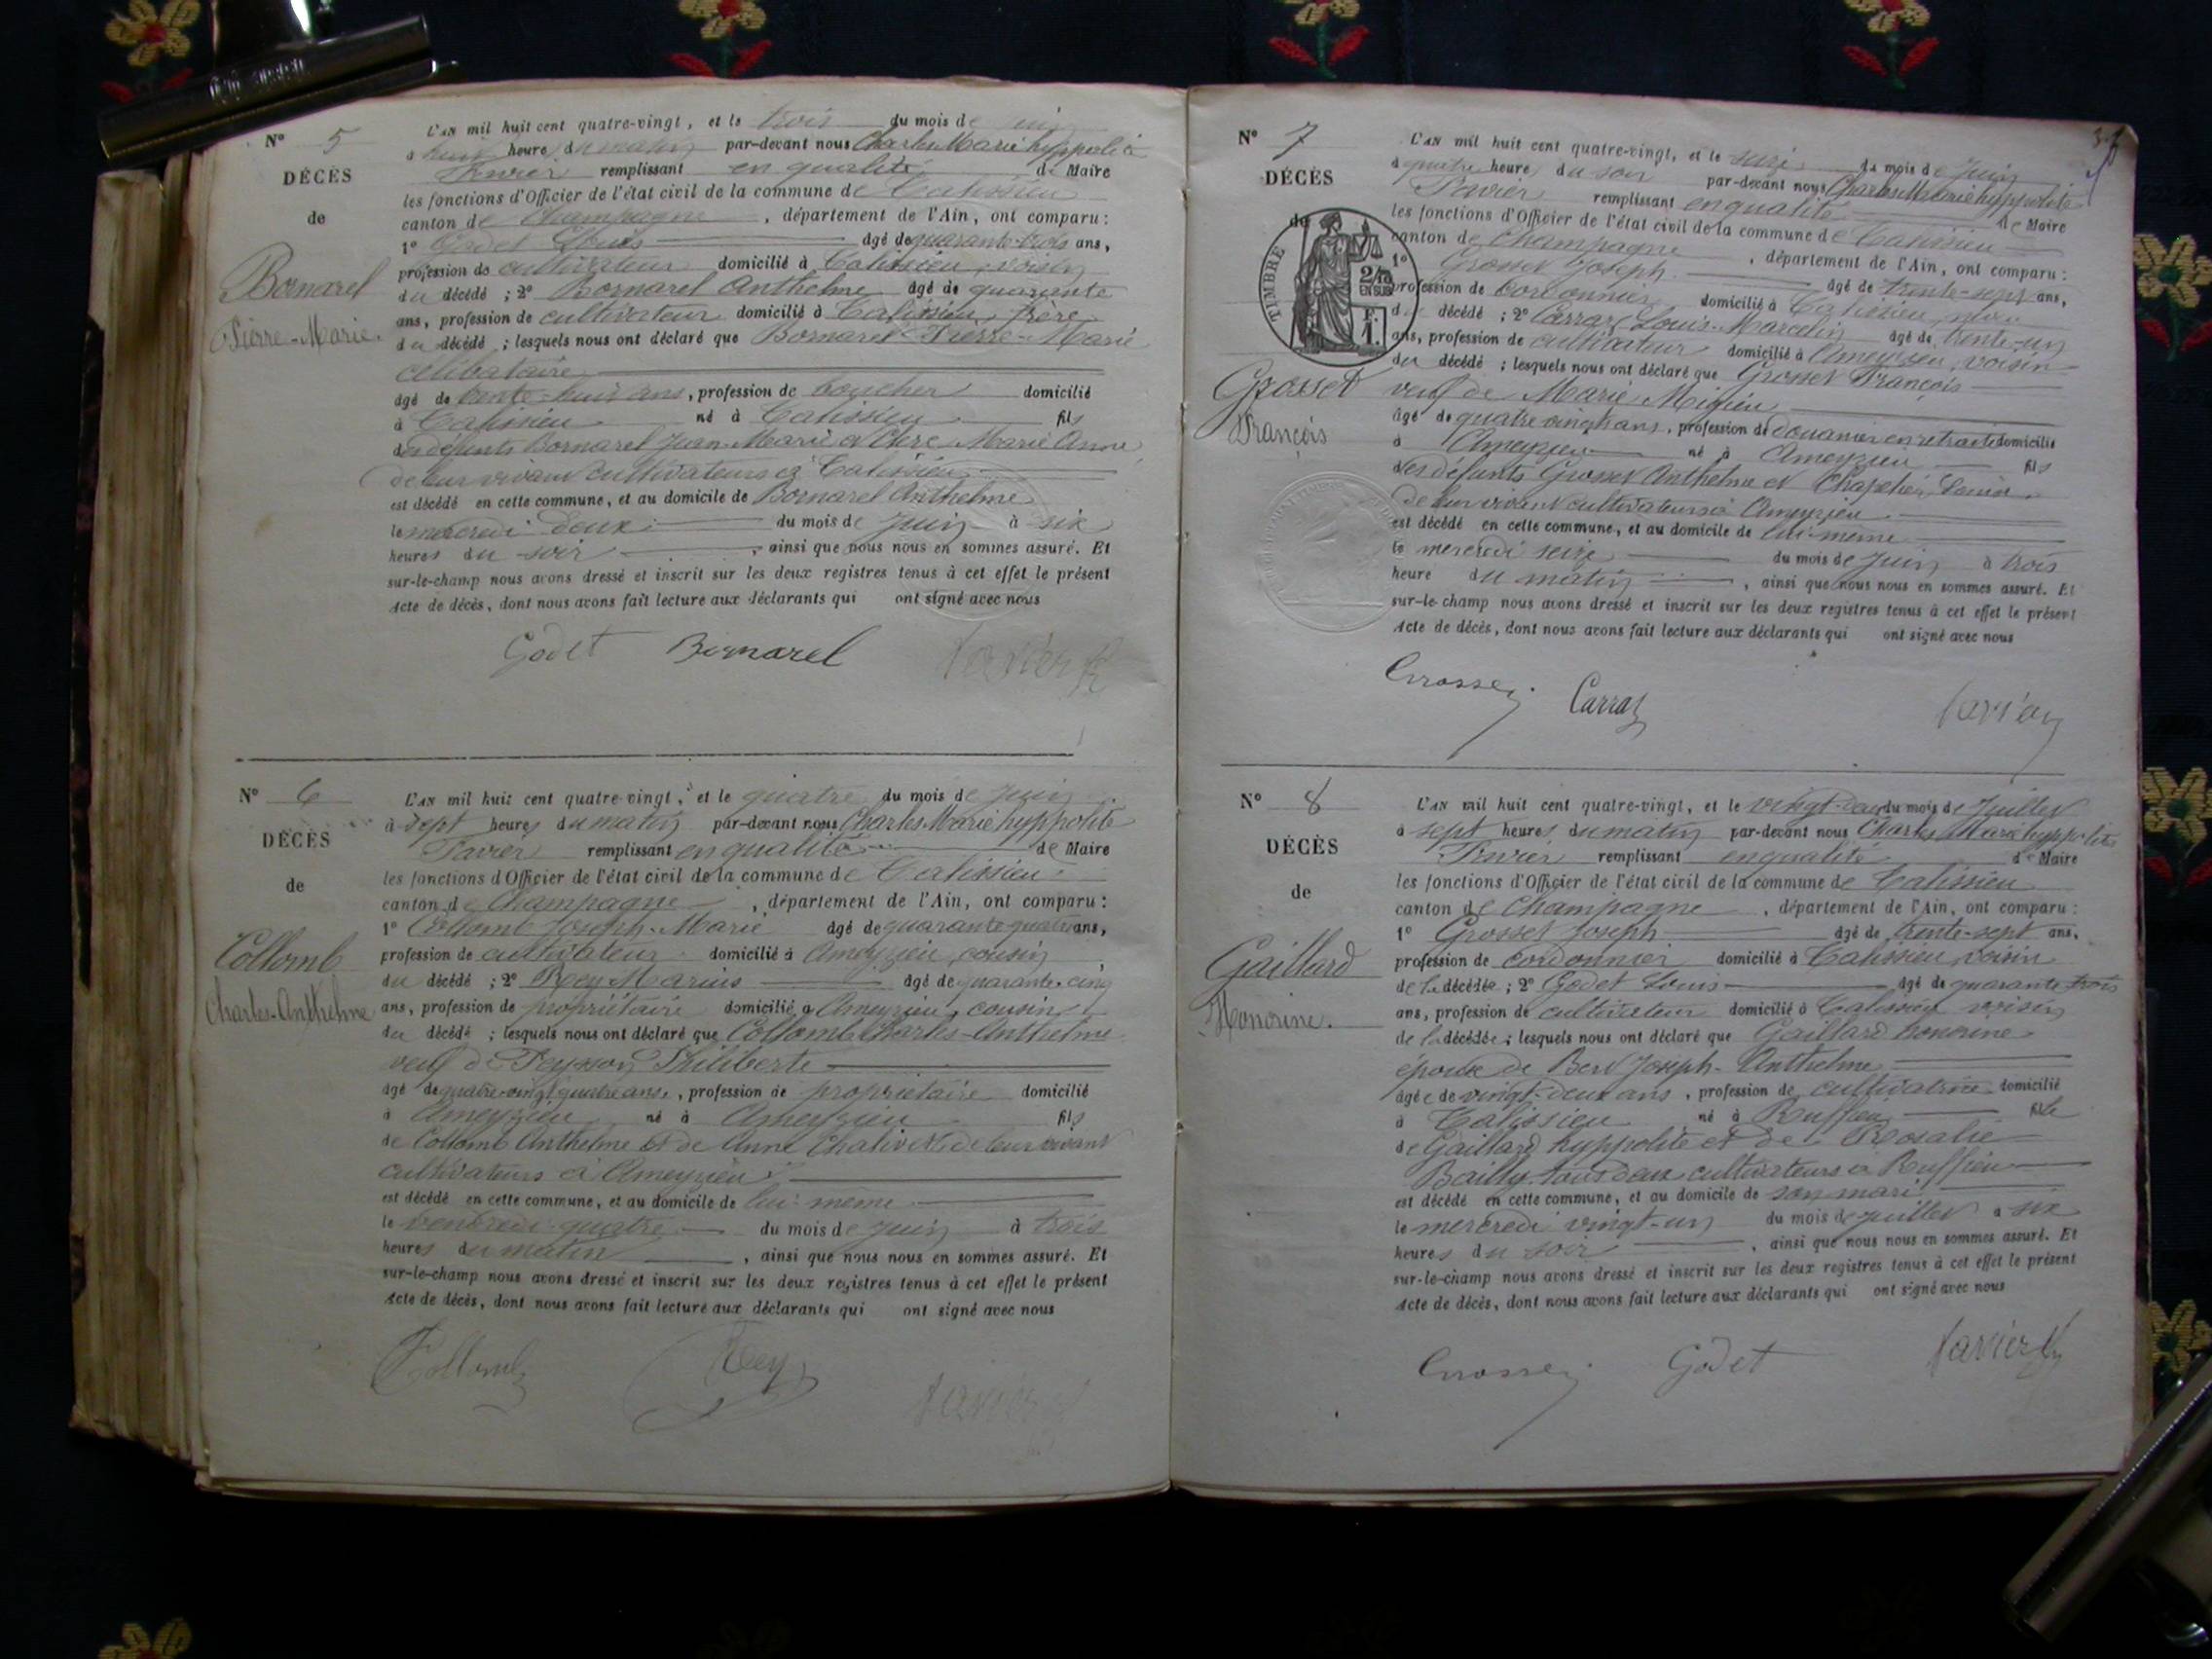 N° 5
DÉCÈS
de
Bornarel
Pierre-Marie.
L'AN mil huit cent quatre-vingt, et le trois du mois de juin
à huit heures du matin par-devant nous Charles Marie hyppolite
remplissant en qualité de Maire
les fonctions d'Officier de l'état civil de la commune de Talissieu
canton de Champagne, département de l'Ain, ont comparu :
1° Godet Louis âgé de quarante-trois ans,
profession de cultivateur domicilié à Talissieu, voisin
du décédé ; 2° Bornarel Anthelme âgé de quarante
ans, profession de cultivateur domicilié à Talissieu, frère
du décédé ; lesquels nous ont déclaré que Bornarel Pierre-Marie
célibataire
âgé de trente-huit ans, profession de boucher domicilié
à Talissieu né à Talissieu fils
des défunts Bornarel Jean-Marie et Clerc Marie Anne
de leur vivant cultivateurs à Talissieu
est décédé en cette commune, et au domicile de Bornarel Anthelme
le mercredi deux du mois de juin à six
heures du soir, ainsi que nous nous en sommes assuré. Et
sur-le-champ nous avons dressé et inscrit sur les deux registres tenus à cet effet le présent
Acte de décès, dont nous avons fait lecture aux déclarants qui ont signé avec nous
Godet Bornarel
N° 6
DÉCÈS
de
Collomb
Charles-Anthelme
L'AN mil huit cent quatre-vingt, et le quatre du mois de juin
à sept heures du matin par-devant nous Charles Marie hyppolite
remplissant en qualité de Maire
les fonctions d'Officier de l'état civil de la commune de Talissieu
canton de Champagne, département de l'Ain, ont comparu :
1° Collomb Joseph-Marie âgé de quarante quatre ans,
profession de cultivateur domicilié à Ameyzieu, cousin
du décédé ; 2° Rey Marius âgé de quarante-cinq
ans, profession de propriétaire domicilié à Ameyzieu, cousin
du décédé ; lesquels nous ont déclaré que Collomb Charles-Anthelme
veuf de Peysson Philiberte
âgé de quatre-vingt quatre ans, profession de propriétaire domicilié
à Ameyzieu né à Ameyzieu fils
de Collomb Anthelme et de Anne de leur vivant
cultivateurs à Ameyzieu
est décédé en cette commune, et au domicile de lui-même
le vendredi quatre du mois de juin à trois
heures du matin, ainsi que nous nous en sommes assuré. Et
sur-le-champ nous avons dressé et inscrit sur les deux registres tenus à cet effet le présent
Acte de décès, dont nous avons fait lecture aux déclarants qui ont signé avec nous
Collomb Rey
N° 7
DÉCÈS
de
TIMBRE
2/10
EN SUS
F.
1.
Grosset
François
L'AN mil huit cent quatre-vingt, et le seize du mois de juin
à quatre heures du soir par-devant nous Charles Marie hyppolite
remplissant en qualité de Maire
les fonctions d'Officier de l'état civil de la commune de Talissieu
canton de Champagne, département de l'Ain, ont comparu :
1° Grosset Joseph âgé de trente-sept ans,
profession de cordonnier domicilié à Talissieu
du décédé ; 2° Carraz Louis-Marcelin âgé de trente-un
ans, profession de cultivateur domicilié à Ameyzieu, voisin
du décédé ; lesquels nous ont déclaré que Grosset François
veuf de Marie
âgé de quatre vingts ans, profession de douanier en retraite domicilié
à Ameyzieu né à Ameyzieu fils
des défunts Grosset Anthelme et
de leur vivant cultivateurs à Ameyzieu
est décédé en cette commune, et au domicile de lui-même
le mercredi seize du mois de juin à trois
heure du matin, ainsi que nous nous en sommes assuré. Et
sur-le-champ nous avons dressé et inscrit sur les deux registres tenus à cet effet le présent
Acte de décès, dont nous avons fait lecture aux déclarants qui ont signé avec nous
Grosset Carraz
N° 8
DÉCÈS
de
Gaillard
Honorine.
L'AN mil huit cent quatre-vingt, et le vingt-deux du mois de juillet
à sept heures du matin par-devant nous Charles Marie hyppolite
remplissant en qualité de Maire
les fonctions d'Officier de l'état civil de la commune de Talissieu
canton de Champagne, département de l'Ain, ont comparu :
1° Grosset Joseph âgé de trente-sept ans,
profession de cordonnier domicilié à Talissieu, voisin
de la décédée ; 2° Godet Louis âgé de quarante trois
ans, profession de cultivateur domicilié à Talissieu voisin
de la décédée ; lesquels nous ont déclaré que Gaillard honorine
épouse de Joseph-Anthelme
âgée de vingt-deux ans, profession de cultivatrice domicilié
à Talissieu né à Ruffieu fille
de Gaillard hyppolite et de Rosalie
Bailly tous deux cultivateurs à Ruffieu
est décédé en cette commune, et au domicile de son mari
le mercredi vingt-un du mois de juillet à six
heures du soir, ainsi que nous nous en sommes assuré. Et
sur-le-champ nous avons dressé et inscrit sur les deux registres tenus à cet effet le présent
Acte de décès, dont nous avons fait lecture aux déclarants qui ont signé avec nous
Grosset Godet